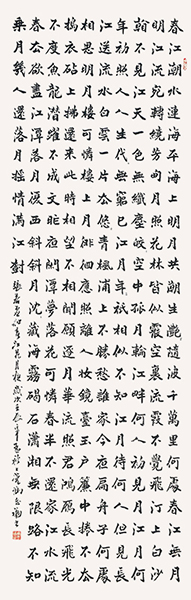 春江潮水連海平海上明月共潮生灩灩隨波千萬里何處春江無月
明江流宛轉繞芳甸月照花林皆似霰空裏流霜不覺飛汀上白沙
看不見江天一色無纖塵皎皎空中孤月輪江畔何人初見月江月何
年初照人人生代代無窮已江月年年祗相似不知江月待何人但見長
江送流水白雲一片去悠悠青楓浦上不勝愁誰家今夜扁舟子何處
相思明月樓可憐樓上月徘徊應照離人妝鏡臺玉戶簾中捲不去
擣衣砧上拂還來此時相望不相聞願逐月華流照君鴻雁長飛光
不度魚龍潛躍水成文昨夜閑潭夢落花可憐春半不還家江水流
春去欲盡江潭落月復西斜斜月沉沉藏海霧碣石瀟湘無限路不知
乘月幾人還落月搖情滿江樹 張若虛春江花月夜